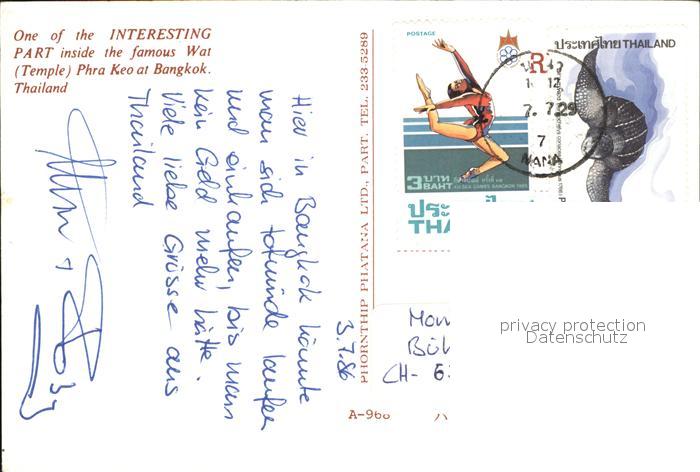 One of the INTERESTING
PART inside the famous Wat
(Temple) Phra Keo at Bangkok.
Thailand
Hier in Bangkok könnte
man sich totmüde laufen
und einkaufen, bis man
kein Geld mehr hätte.
Viele liebe Grüsse aus
Thailand
3.7.86
PHORNTHIP PHATANA LTD., PART. TEL. 233-5289
A-960
POSTAGE
R
3 บาท
BAHT
ประ
THA
ประเทศไทย THAILAND
7. 7.29
7
NANA
Mon
CH- 6
privacy protection
Datenschutz